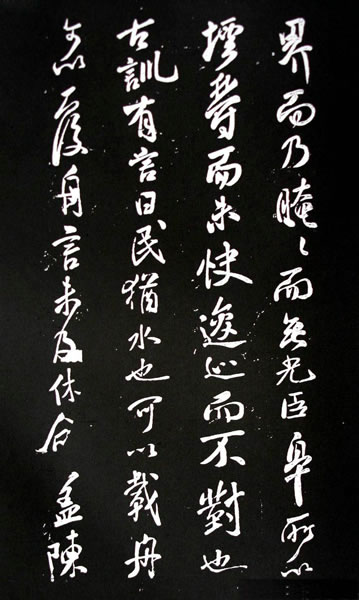 界而乃晻〻而無光臣皋所以
而未快逡巡而不對也
古訓有言曰民猶水也可以載舟
亦以覆舟言未及休合孟陳